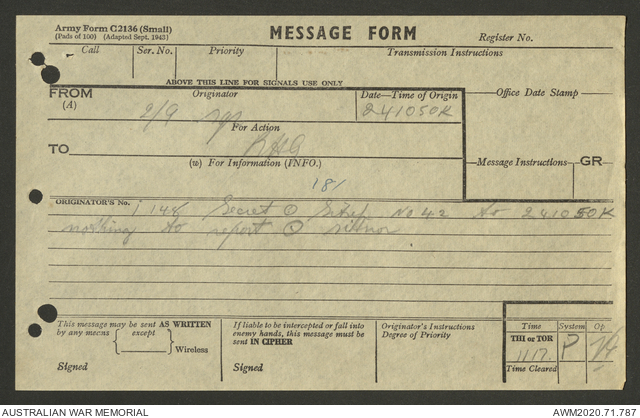 Army Form C2136 (Small)
(Pads of 100) (Adapted Sept. 1943)
MESSAGE FORM
Register No.
Call
Ser. No.
Priority
Transmission Instructions
ABOVE THIS LINE FOR SIGNALS USE ONLY
FROM
(A)
Originator
Date—Time of Origin
Office Date Stamp
2/9
241050K
For Action
TO
(w) For Information (INFO.)
Message Instructions
GR
181
ORIGINATOR'S No.
I 148 Secret Sitrep No 42 to 241050K
nothing to report sitnor
This message may be sent AS WRITTEN
by any means except
Wireless
Signed
If liable to be intercepted or fall into
enemy hands, this message must be
sent IN CIPHER
Signed
Originator's Instructions
Degree of Priority
Time
System
Op
THI or TOR
1117
P
Time Cleared
AUSTRALIAN WAR MEMORIAL
AWM2020.71.787